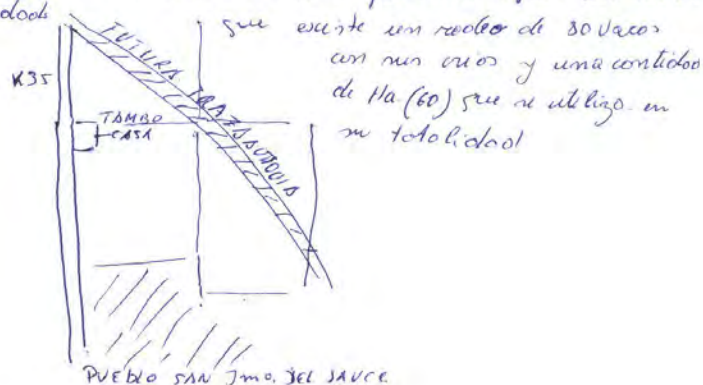 dado
que existe un rodeo de 80 vacas
con sus crias y una cantidad
de Ha. (60) que se utiliza en
su totalidad
K35
TAMBO
CASA
FUTURA TRAZA AUTOVIA
PUEBLO SAN JMO. DEL SAUCE